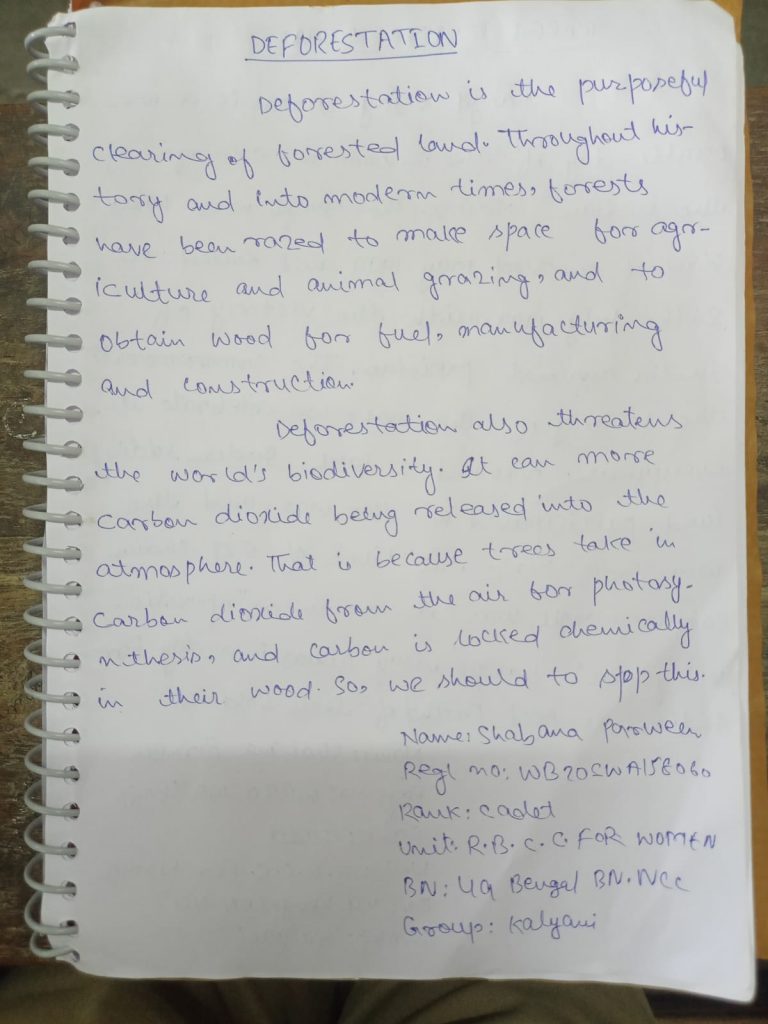 DEFORESTATION
Deforestation is the purposeful
clearing of forested land. Throughout his-
tory and into modern times, forests
have been razed to make space for agr-
iculture and animal grazing, and to
obtain wood for fuel, manufacturing
and construction.
Deforestation also threatens
the world's biodiversity. It can more
carbon dioxide being released into the
atmosphere. That is because trees take in
carbon dioxide from the air for photosy-
nthesis, and carbon is locked chemically
in their wood. So, we should to stop this.
Name: Shabana Parween
Regl no: WB20SWA158060
Rank: Cadet
Unit: R.B.C.C. FOR WOMEN
BN: 49 Bengal BN. NCC
Group: Kalyani